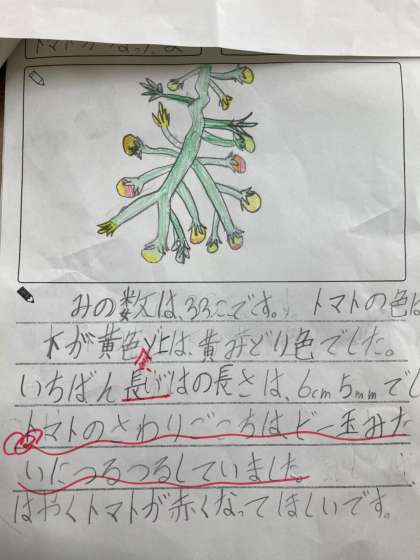 トマトが
みの数は、33こです。トマトの色は
下が黄色、上は、黄みどり色でした。
いちばん長いはの長さは、6cm5mmでし
トマトのさわりごこちは、ビー玉みた
いにつるつるしていました。
はやくトマトが赤くなってほしいです。